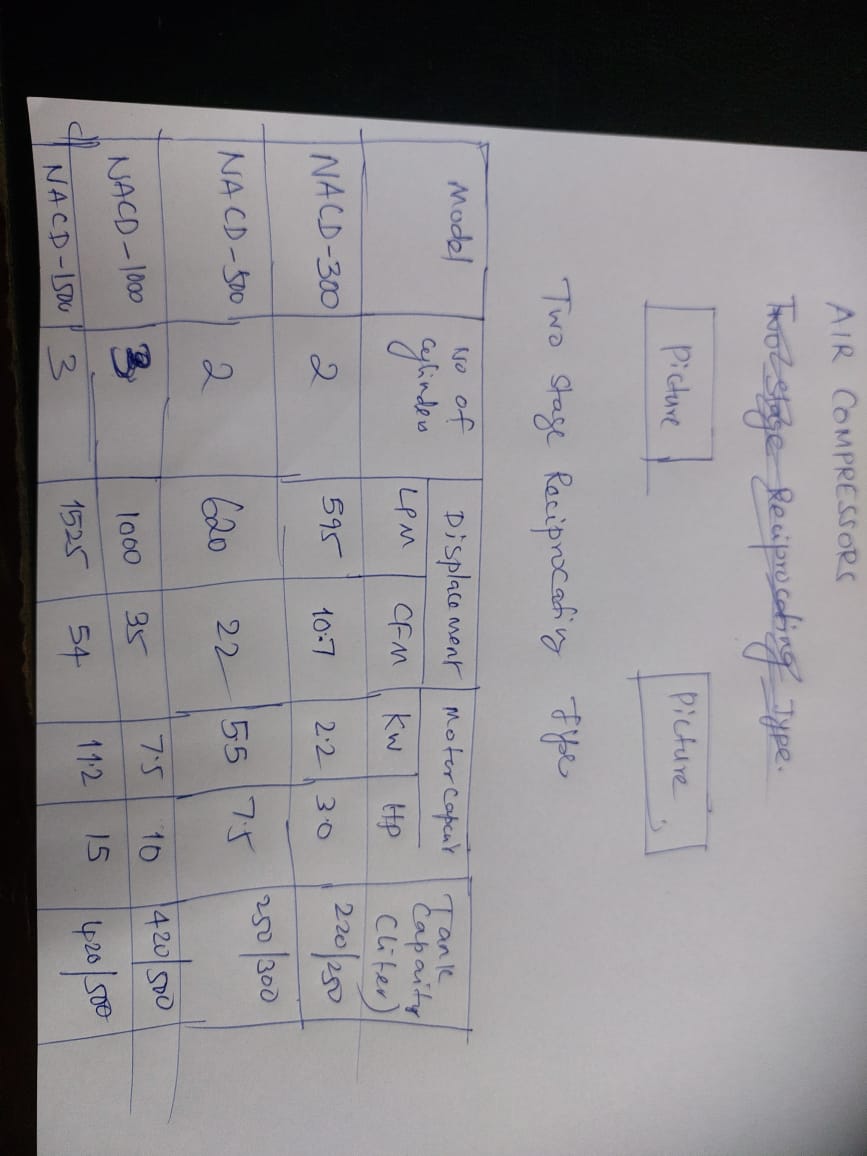 AIR COMPRESSORS
Two Stage Reciprocating Type.
Picture Picture
Two Stage Reciprocating Type
Model No of cylinders Displacement Motor Tank Capaity (liter)
LPM CFM KW Hp
NACD-300 2 595 10.7 2.2 3.0 220/250
NACD-500 2 620 22 55 7.5 250/300
NACD-1000 3 1000 35 7.5 10 420/500
NACD-1500 3 1525 54 11.2 15 420/500